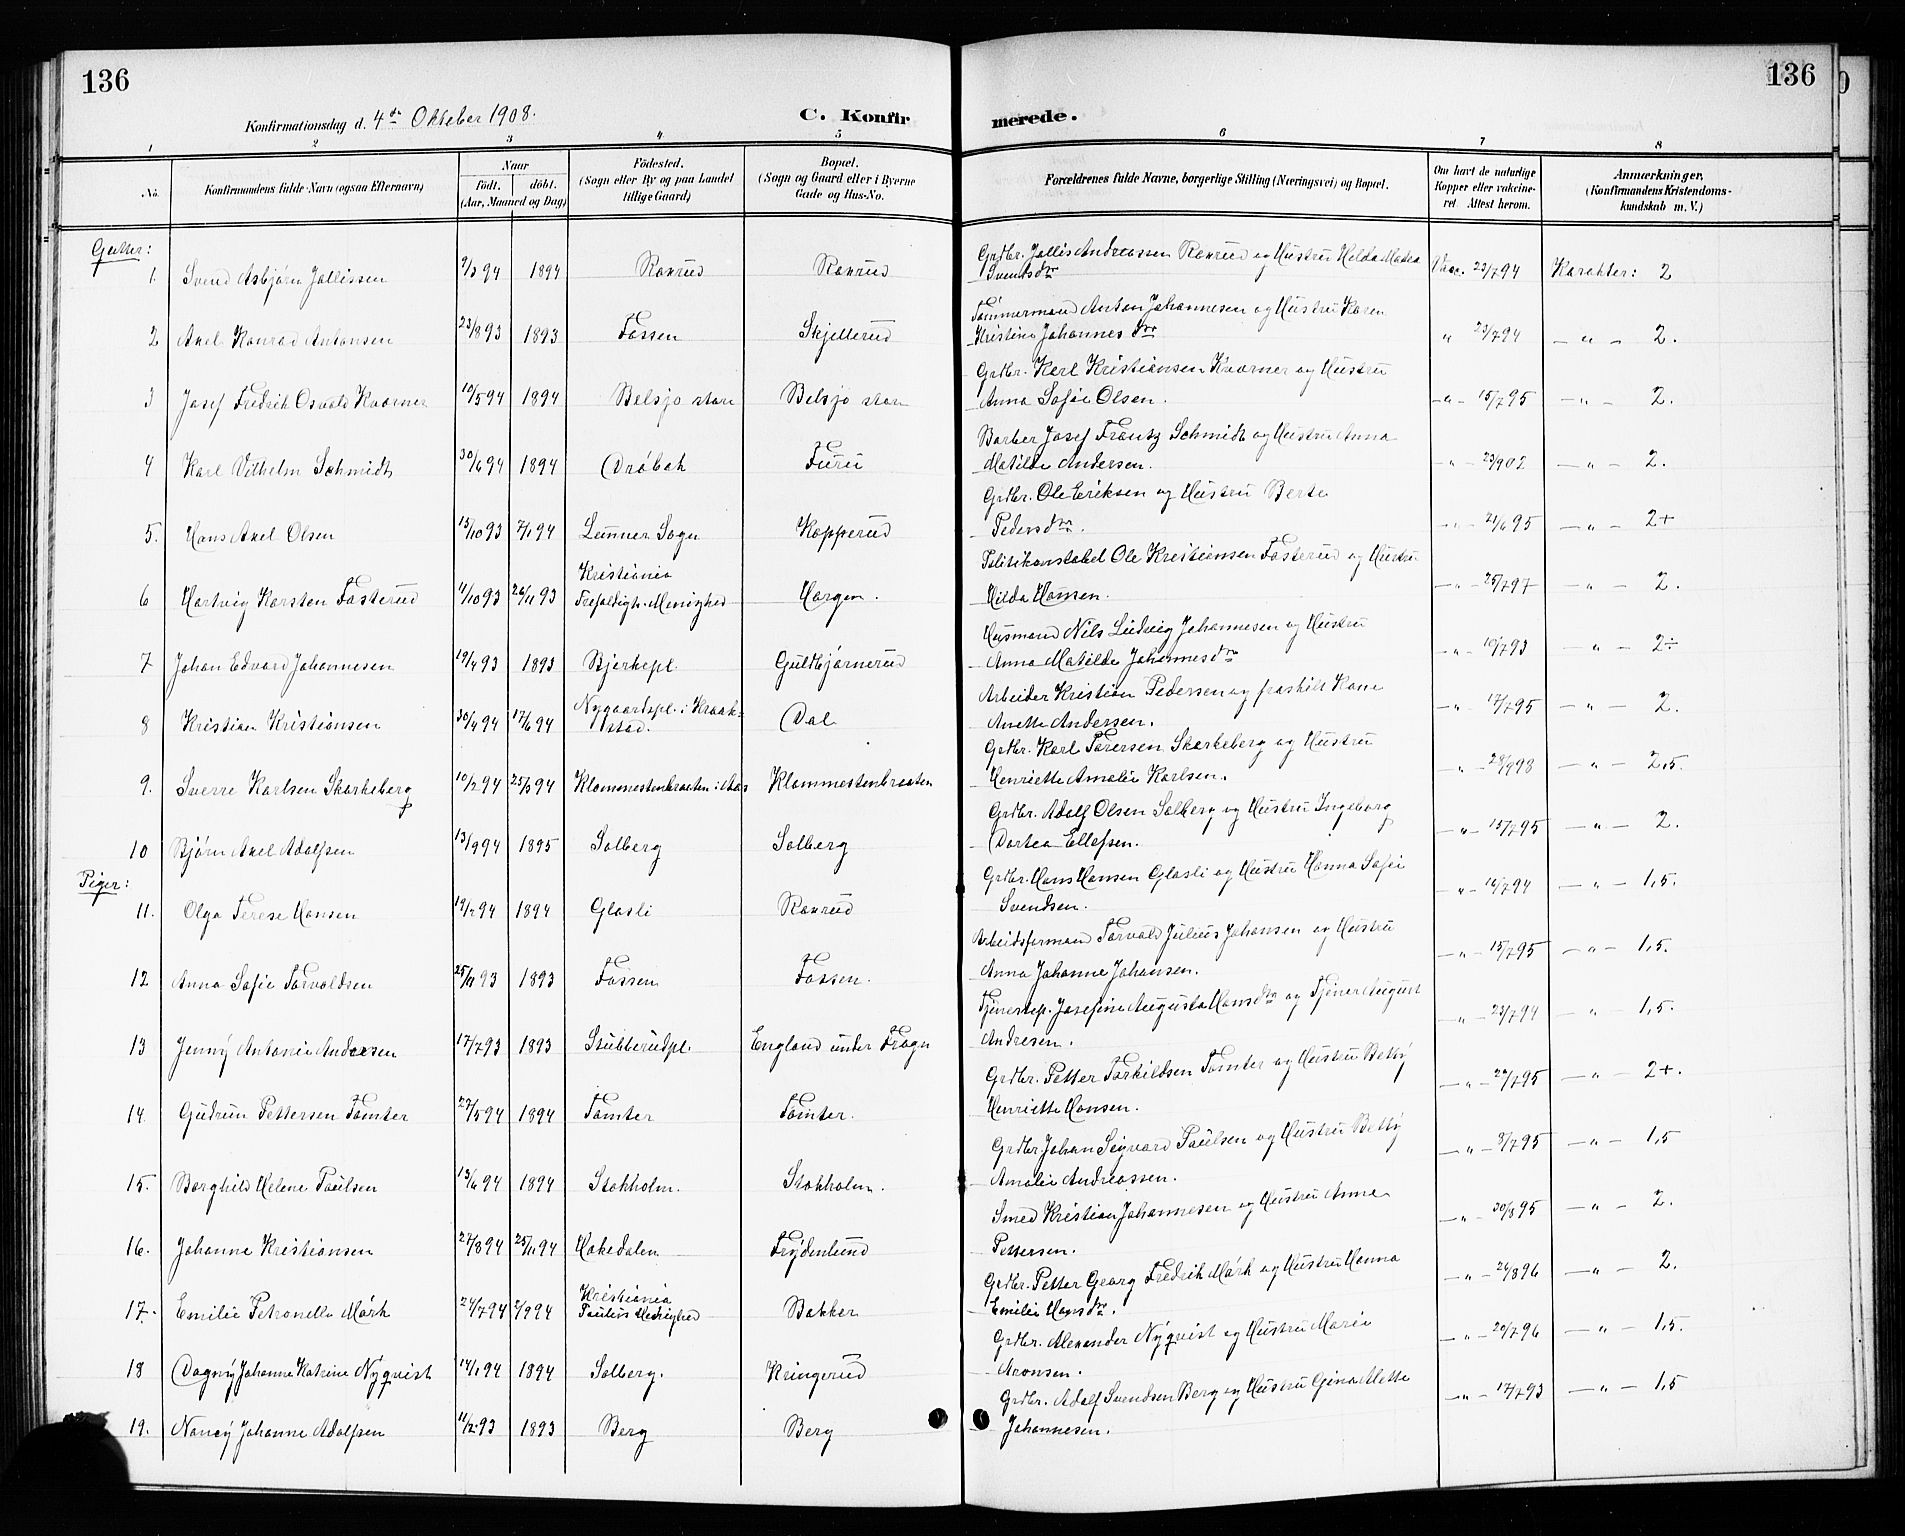 136
136
Konfirmationsdag d. 4de Oktober 1908.
C. Konfirmerede.
1 2 3 4 5 6 7 8
No.
Konfirmandens fulde Navn (ogsaa Efternavn)
Naar
født. døbt.
(Aar, Maaned og Dag)
Födested.
(Sogn eller By og paa Landet
tillige Gaard)
Bopæl.
(Sogn og Gaard eller i Byerne
Gade og Hus-No.
Forældrenes fulde Navne, borgerlige Stilling (Næringsvei) og Bopæl.
Om havt de naturlige
Kopper eller vakcine-
ret. Attest herom.
Anmærkninger,
(Konfirmandens Kristendoms-
kundskab m. V.)
Gutter:
1. Svend Asbjørn Jollissen 94 1894 Ronrud Ronrud
Grdbr. Jollis Andreassen Ronrud og Hustru Hilda Matea
Svendsdtr Vacc. 23/7 94 Karakter: 2
2 Axel Konrad Antonsen 23/8 93 1893 Fossen Skjellerud
Tømmermand Anton Johannesen og Hustru Karen
Kristine Johannesdtr " 23/7 94 — " — 2.
3 Josef Fredrik Osvald Kværner 10/5 94 1894 Belsjø Belsjø
Grdbr. Karl Kristiansen Kværner og Hustru
Anna Sofie Olsen. — " — 15/7 95 — " — 2.
4 Karl Vilhelm Schmidt 30/6 94 1894 Drøbak Furu
Barber Josef Frantz Schmidt og Hustru Anna
Matilde Andersen. — " — 23/9 02 — " — 2.
5. Hans Axel Olsen 15/10 93 7/1 94 Lunner Sogn Kopperud
Grdbr. Ole Eriksen og Hustru Berte
Pedersdtr. — " — 21/6 95 — " — 2+
6 Hartvig Karsten Fosterud 11/10 93 26/11 93 Kristiania
Trefoldigh. Menighed Horgen.
Politikonstabel Ole Kristiansen Fosterud og Hustru
Hilda Hansen. — " — 25/7 97 — " — 2.
7 Johan Edvard Johannesen 19/4 93 1893 Bjerkepl. Guldbjørnerud
Husmand Nils Ludvig Johannesen og Hustru
Anna Matilde Johannesdtr — " — 10/7 93 — " — 2÷
8 Kristian Kristiansen 30/4 94 17/6 94 Nygaardspl. i Kraak-
stad. Dal
Arbeider Kristian Pedersen og fraskilt Kone
Anette Andersen. — " — 17/7 95 — " — 2.
9. Sverre Karlsen Skorkeberg 10/2 94 25/3 94 Klommestenbraaten i Aas Klommestenbraaten
Grdbr. Karl Torersen Skorkeberg og Hustru
Henriette Amalie Karlsen. — " — 28/9 98 — " — 2,5.
10 Bjørn Axel Adolfsen 13/9 94 1895 Solberg Solberg
Grdbr. Adolf Olsen Solberg og Hustru Ingeborg
Dortea Ellefsen. — " — 15/7 95 — " — 2.
Piger:
11. Olga Terese Hansen 19/2 94 1894 Glosli Ronrud
Grdbr. Hans Hansen Glosli og Hustru Hanna Sofie
Svendsen. — " — 16/7 94 — " — 1,5.
12 Anna Sofie Torvaldsen 25/11 93 1893 Fossen Fossen.
Arbeidsformand Torvald Julius Johansen og Hustru
Anna Johanne Johansen. — " — 15/7 95 — " — 1,5.
13 Jenny Antonie Andersen 17/7 93 1893 Stubberudpl. England under Frogn
Tjenestep. Josefine Augusta Hansdtr og Tjener August
Andresen. — " — 23/7 94 — " — 1,5.
14. Gudrun Pettersen Tomter 27/5 94 1894 Tomter Tomter.
Grdbr. Petter Torkildsen Tomter og Hustru Betty
Henriette Hansen. — " — 22/7 95 — " — 2+.
15. Borghild Helene Paulsen 13/6 94 1894 Stokholm. Stokholm.
Grdbr Johan Sigvard Paulsen og Hustru Betty
Amalie Andreassen. — " — 8/7 95 — " — 1,5
16. Johanne Kristiansen 27/8 94 25/11 94 Hakedalen Frydenlund
Smed Kristian Johannesen og Hustru Anne
Pettersen. — " — 30/8 95 — " — 2.
17. Emilie Petronella Mørk 24/7 94 2/9 94 Kristiania
Paulus Menighed Bakker
Grdbr. Petter Georg Fredrik Mørk og Hustru Hanna
Emilie Hansdtr. — " — 26/8 96 — " — 2.
18 Dagny Johanne Katrine Nyqvist 14/1 94 1894 Solberg. Kringerud
Grdbr. Alexander Nyqvist og Hustru Marie
Aronsen. — " — 20/7 96 — " — 1,5.
19. Nancy Johanne Adolfsen 11/2 93 1893 Berg Berg
Grdbr. Adolf Svendsen Berg og Hustru Gina Mette
Johannesen. — " — 17/7 93 — " — 1,5